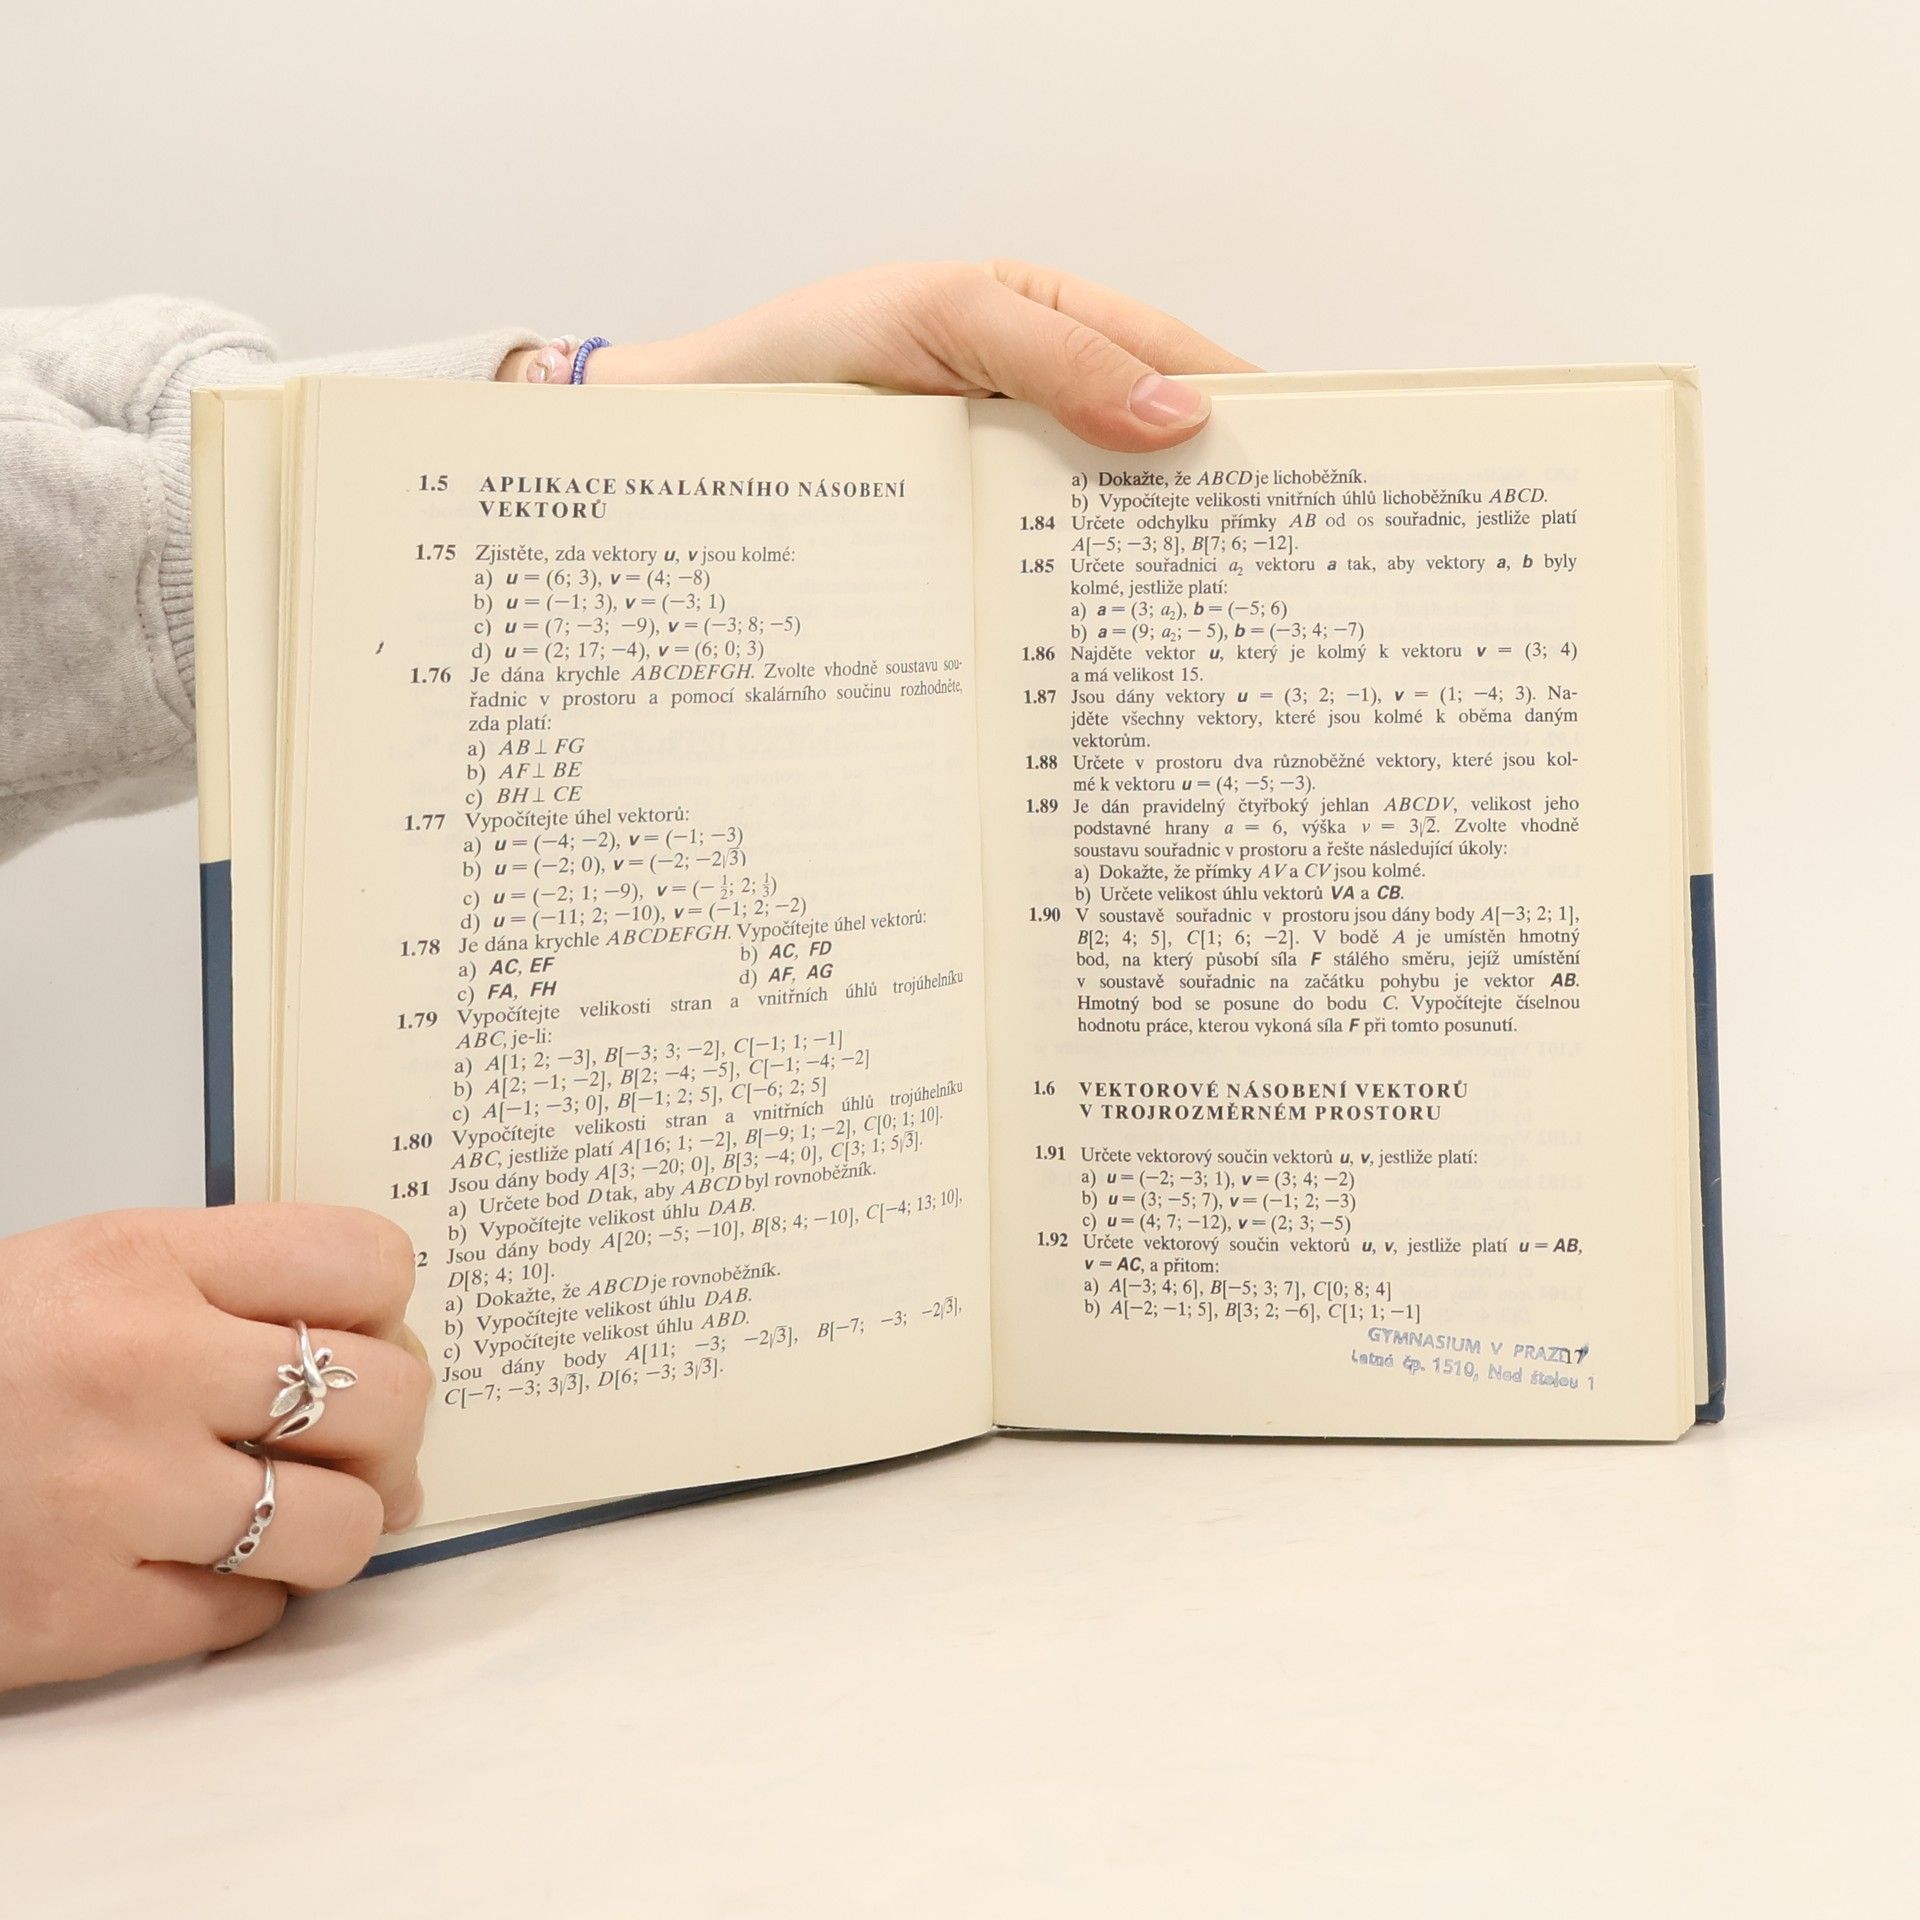 1.5 APLIKACE SKALÁRNÍHO NÁSOBENÍ
VEKTORŮ
1.75 Zjistěte, zda vektory u, v jsou kolmé:
a) u = (6; 3), v = (4; −8)
b) u = (−1; 3), v = (−3; 1)
c) u = (7; −3; −9), v = (−3; 8; −5)
d) u = (2; 17; −4), v = (6; 0; 3)
1.76 Je dána krychle ABCDEFGH. Zvolte vhodně soustavu sou-
řadnic v prostoru a pomocí skalárního součinu rozhodněte,
zda platí:
a) AB ⊥ FG
b) AF ⊥ BE
c) BH ⊥ CE
1.77 Vypočítejte úhel vektorů:
a) u = (−4; −2), v = (−1; −3)
b) u = (−2; 0), v = (−2; −2√3)
c) u = (−2; 1; −9), v = (−1/2; 2; 1/3)
d) u = (−11; 2; −10), v = (−1; 2; −2)
1.78 Je dána krychle ABCDEFGH. Vypočítejte úhel vektorů:
a) AC, EF b) AC, FD
c) FA, FH d) AF, AG
1.79 Vypočítejte velikosti stran a vnitřních úhlů trojúhelníku
ABC, je-li:
a) A[1; 2; −3], B[−3; 3; −2], C[−1; 1; −1]
b) A[2; −1; −2], B[2; −4; −5], C[−1; −4; −2]
c) A[−1; −3; 0], B[−1; 2; 5], C[−6; 2; 5]
1.80 Vypočítejte velikosti stran a vnitřních úhlů trojúhelníku
ABC, jestliže platí A[16; 1; −2], B[−9; 1; −2], C[0; 1; 10].
1.81 Jsou dány body A[3; −20; 0], B[3; −4; 0], C[3; 1; 5√3].
a) Určete bod D tak, aby ABCD byl rovnoběžník.
b) Vypočítejte velikost úhlu DAB.
2 Jsou dány body A[20; −5; −10], B[8; 4; −10], C[−4; 13; 10],
D[8; 4; 10].
a) Dokažte, že ABCD je rovnoběžník.
b) Vypočítejte velikost úhlu DAB.
c) Vypočítejte velikost úhlu ABD.
Jsou dány body A[11; −3; −2√3], B[−7; −3; −2√3],
C[−7; −3; 3√3], D[6; −3; 3√3].
a) Dokažte, že ABCD je lichoběžník.
b) Vypočítejte velikosti vnitřních úhlů lichoběžníku ABCD.
1.84 Určete odchylku přímky AB od os souřadnic, jestliže platí
A[−5; −3; 8], B[7; 6; −12].
1.85 Určete souřadnici a₂ vektoru a tak, aby vektory a, b byly
kolmé, jestliže platí:
a) a = (3; a₂), b = (−5; 6)
b) a = (9; a₂; −5), b = (−3; 4; −7)
1.86 Najděte vektor u, který je kolmý k vektoru v = (3; 4)
a má velikost 15.
1.87 Jsou dány vektory u = (3; 2; −1), v = (1; −4; 3). Na-
jděte všechny vektory, které jsou kolmé k oběma daným
vektorům.
1.88 Určete v prostoru dva různoběžné vektory, které jsou kol-
mé k vektoru u = (4; −5; −3).
1.89 Je dán pravidelný čtyřboký jehlan ABCDV, velikost jeho
podstavné hrany a = 6, výška v = 3√2. Zvolte vhodně
soustavu souřadnic v prostoru a řešte následující úkoly:
a) Dokažte, že přímky AV a CV jsou kolmé.
b) Určete velikost úhlu vektorů VA a CB.
1.90 V soustavě souřadnic v prostoru jsou dány body A[−3; 2; 1],
B[2; 4; 5], C[1; 6; −2]. V bodě A je umístěn hmotný
bod, na který působí síla F stálého směru, jejíž umístění
v soustavě souřadnic na začátku pohybu je vektor AB.
Hmotný bod se posune do bodu C. Vypočítejte číselnou
hodnotu práce, kterou vykoná síla F při tomto posunutí.
1.6 VEKTOROVÉ NÁSOBENÍ VEKTORŮ
V TROJROZMĚRNÉM PROSTORU
1.91 Určete vektorový součin vektorů u, v, jestliže platí:
a) u = (−2; −3; 1), v = (3; 4; −2)
b) u = (3; −5; 7), v = (−1; 2; −3)
c) u = (4; 7; −12), v = (2; 3; −5)
1.92 Určete vektorový součin vektorů u, v, jestliže platí u = AB,
v = AC, a přitom:
a) A[−3; 4; 6], B[−5; 3; 7], C[0; 8; 4]
b) A[−2; −1; 5], B[3; 2; −6], C[1; 1; −1]
GYMNASIUM V PRAZE 7
17
Letná čp. 1510, Nad štolou 1